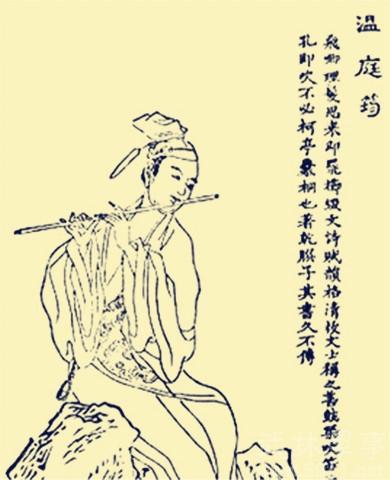 温庭筠
飛卿理髮思来即罷櫛綴文詩賦韻格清拔文士稱之善鼓琴吹笛
孔即吹不必柯亭爨桐也著乾𦠆子其書久不傳